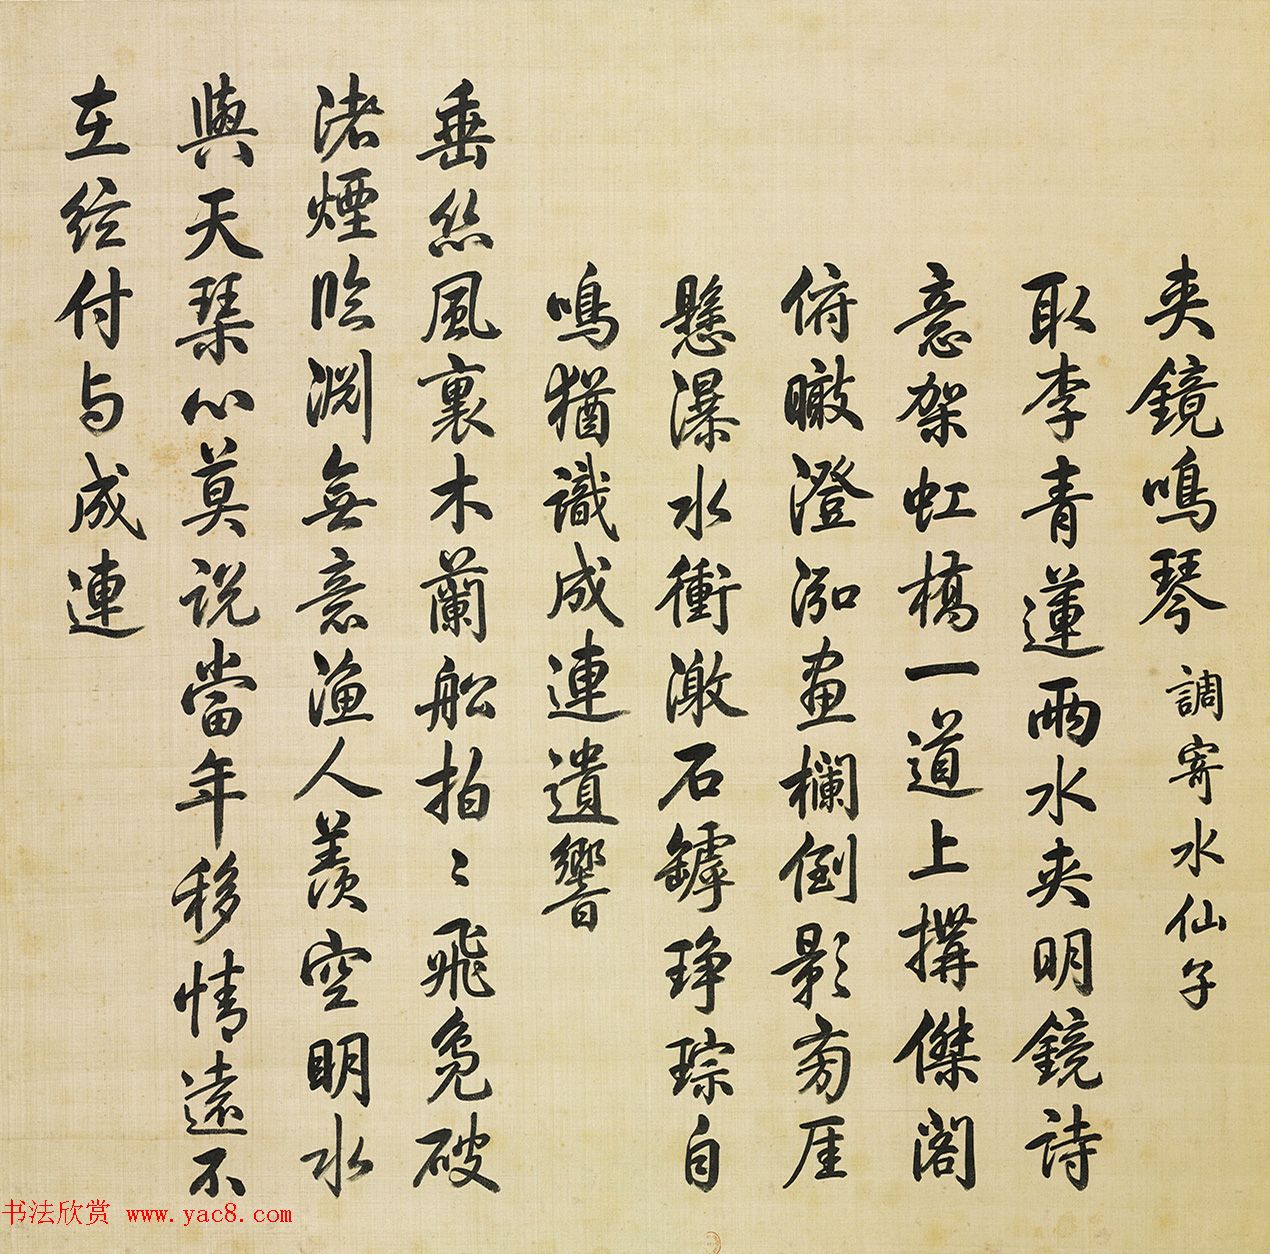 夾鏡鳴琴 調寄水仙子
取李青蓮兩水夾明鏡詩
意架虹橋一道上搆傑閣
俯瞰澄泓畫欄倒影旁厓
懸瀑水衝激石罅琤琮自
鳴猶識成連遺響
垂絲風裏木蘭船拍〻飛鳧破
渚煙臨淵無意漁人羨空明水
與天琹心莫說當年移情遠不
在絃付与成連
书法欣赏 www.yac8.com